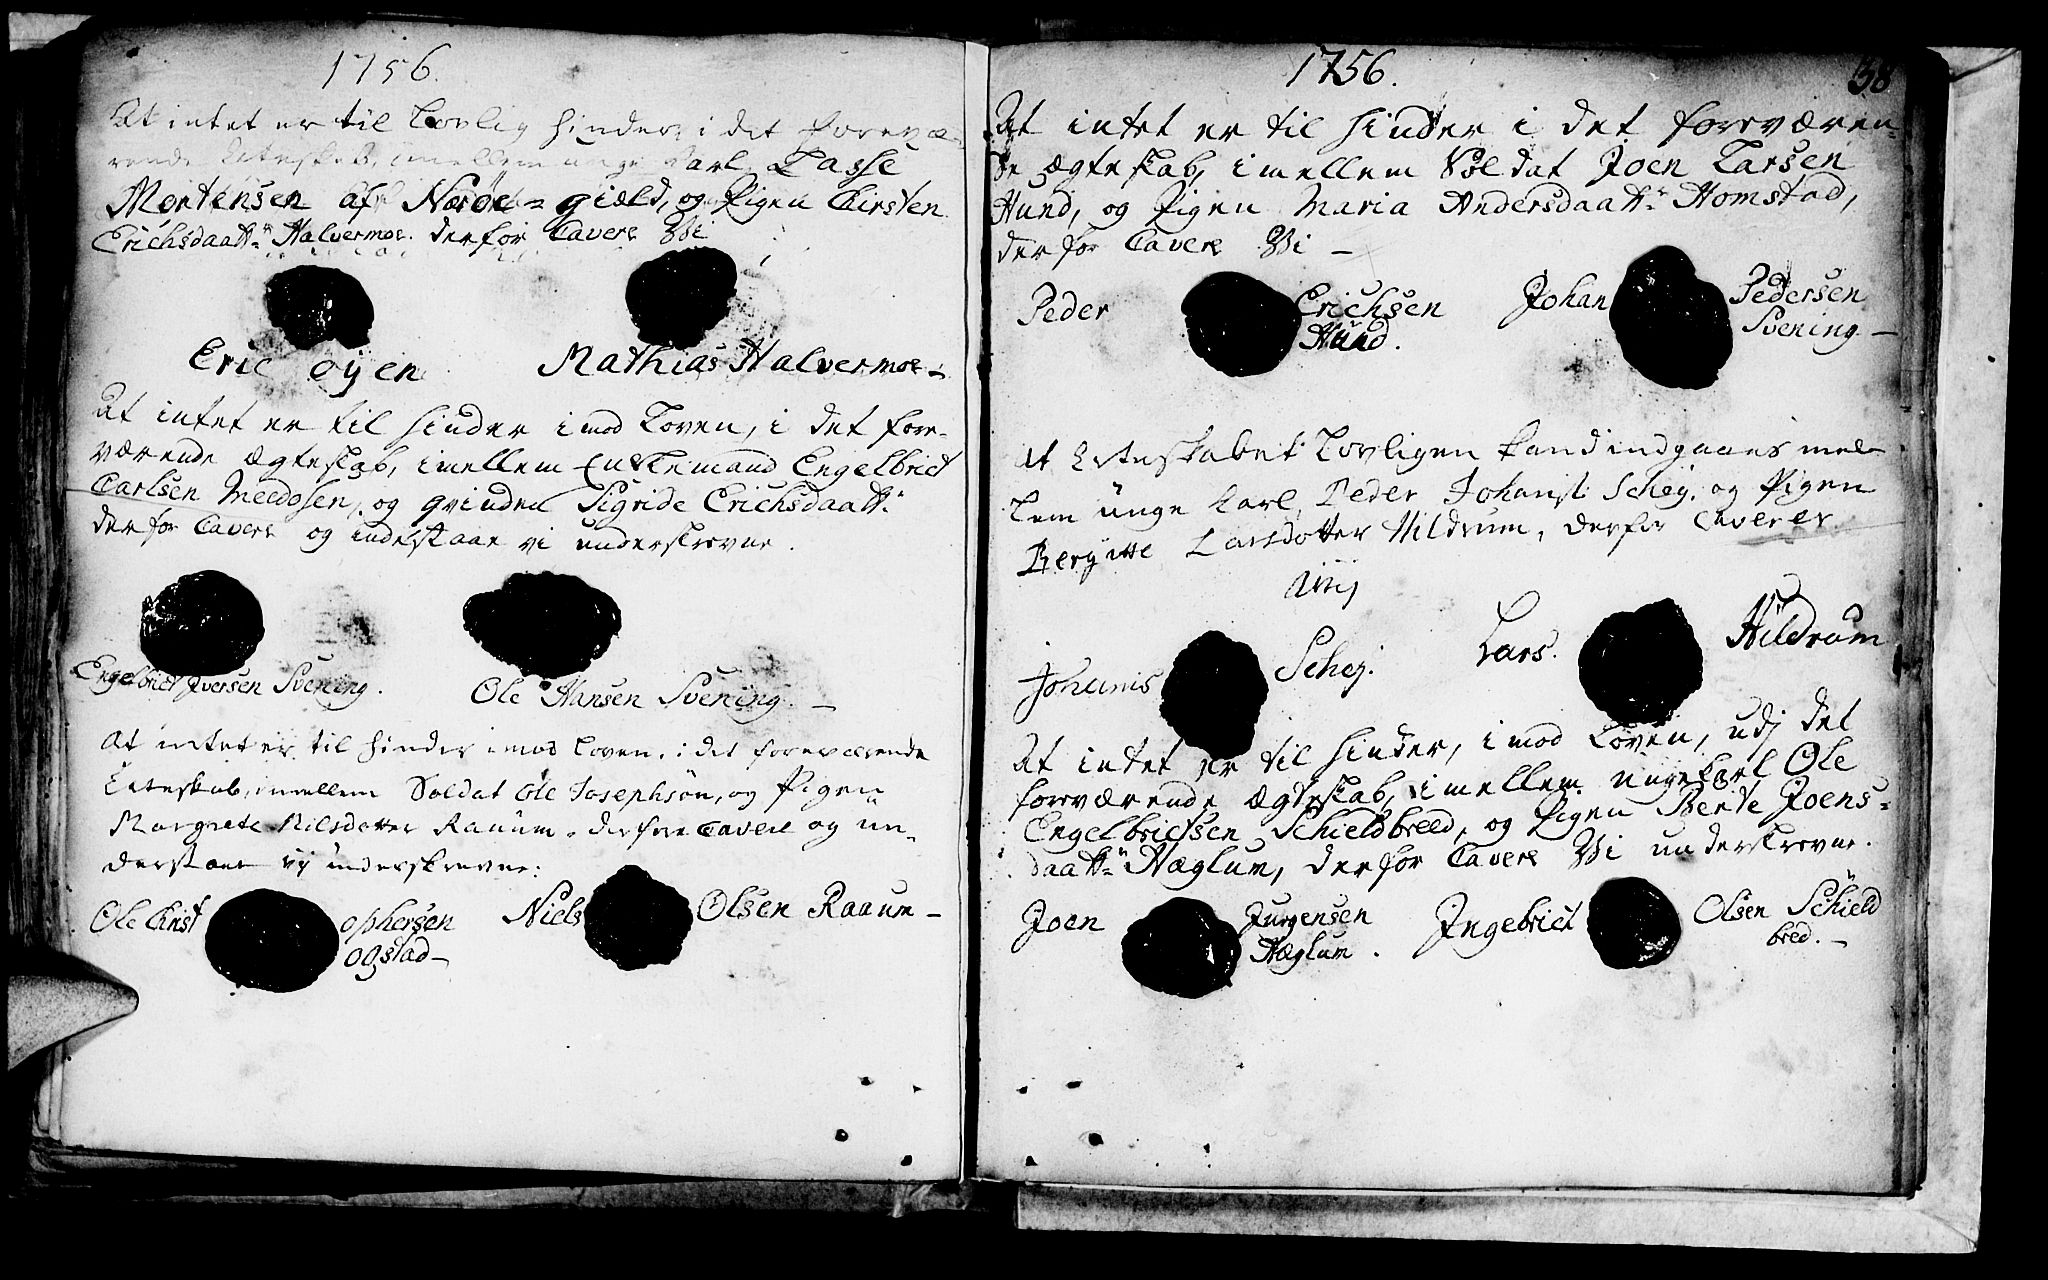 1756.
At intet er til Lovlig hinder, i det forevæ-
rende Ecteskab, imellem unge Karl Lasse
Mortensen af Nærøe-giæld, og Pigen Kirsten
Erichsdaatt: Halvermoe. derfor Cavere Vi
Eric øyen Mathias Halvermoe-
At intet er til hinder imod Loven, i det fore-
værende Ægteskab, imellem Enkemand Engelbrict
Carlsen Meedosen, og qvinden Sigride Erichsdaatt:
derfor Cavere og indestaar vi underskrevne.
Engelbrict Iversen Svening. Ole Hansen Svening. -
At intet er til hinder imod Loven, i det foreværende
Ecteskab, imellem Soldat Ole Josephsøn, og Pigen
Margrete Nilsdotter Raaum, derfore Cavere og un-
derstaar vj underskrevne:
Ole Christ ophersen Niels Olsen Raaum-
ogstad-
1756. 58
At intet er til hinder i det foreværen-
de ægteskab, imellem Soldat Joen Larsen
Hund, og Pigen Maria Andersdaatt: Homstad,
derfor Cavere Vi -
Peder Erichsen Johan Pedersen
Hund. Svening. -
At Ecteskabet Lovligen kand indgaaes mel-
lem unge karl, Peder Johanis: Schej. og Pigen
Bergitte Larsdotter Hildrum, derfor Caverer
Johanis Schej. Lars. Hildrum
At intet er til hinder, imod Loven, udj det
foreværende Ægteskab, imellem ungekarl Ole
Engelbrictsen Schieldbreed, og Pigen Berte Joens-
daatt: Hæglum, derfor Cavere Vi underskrevne.
Joen Jurgensen Ingebrict Olsen Schield
Hæglum. bred. -